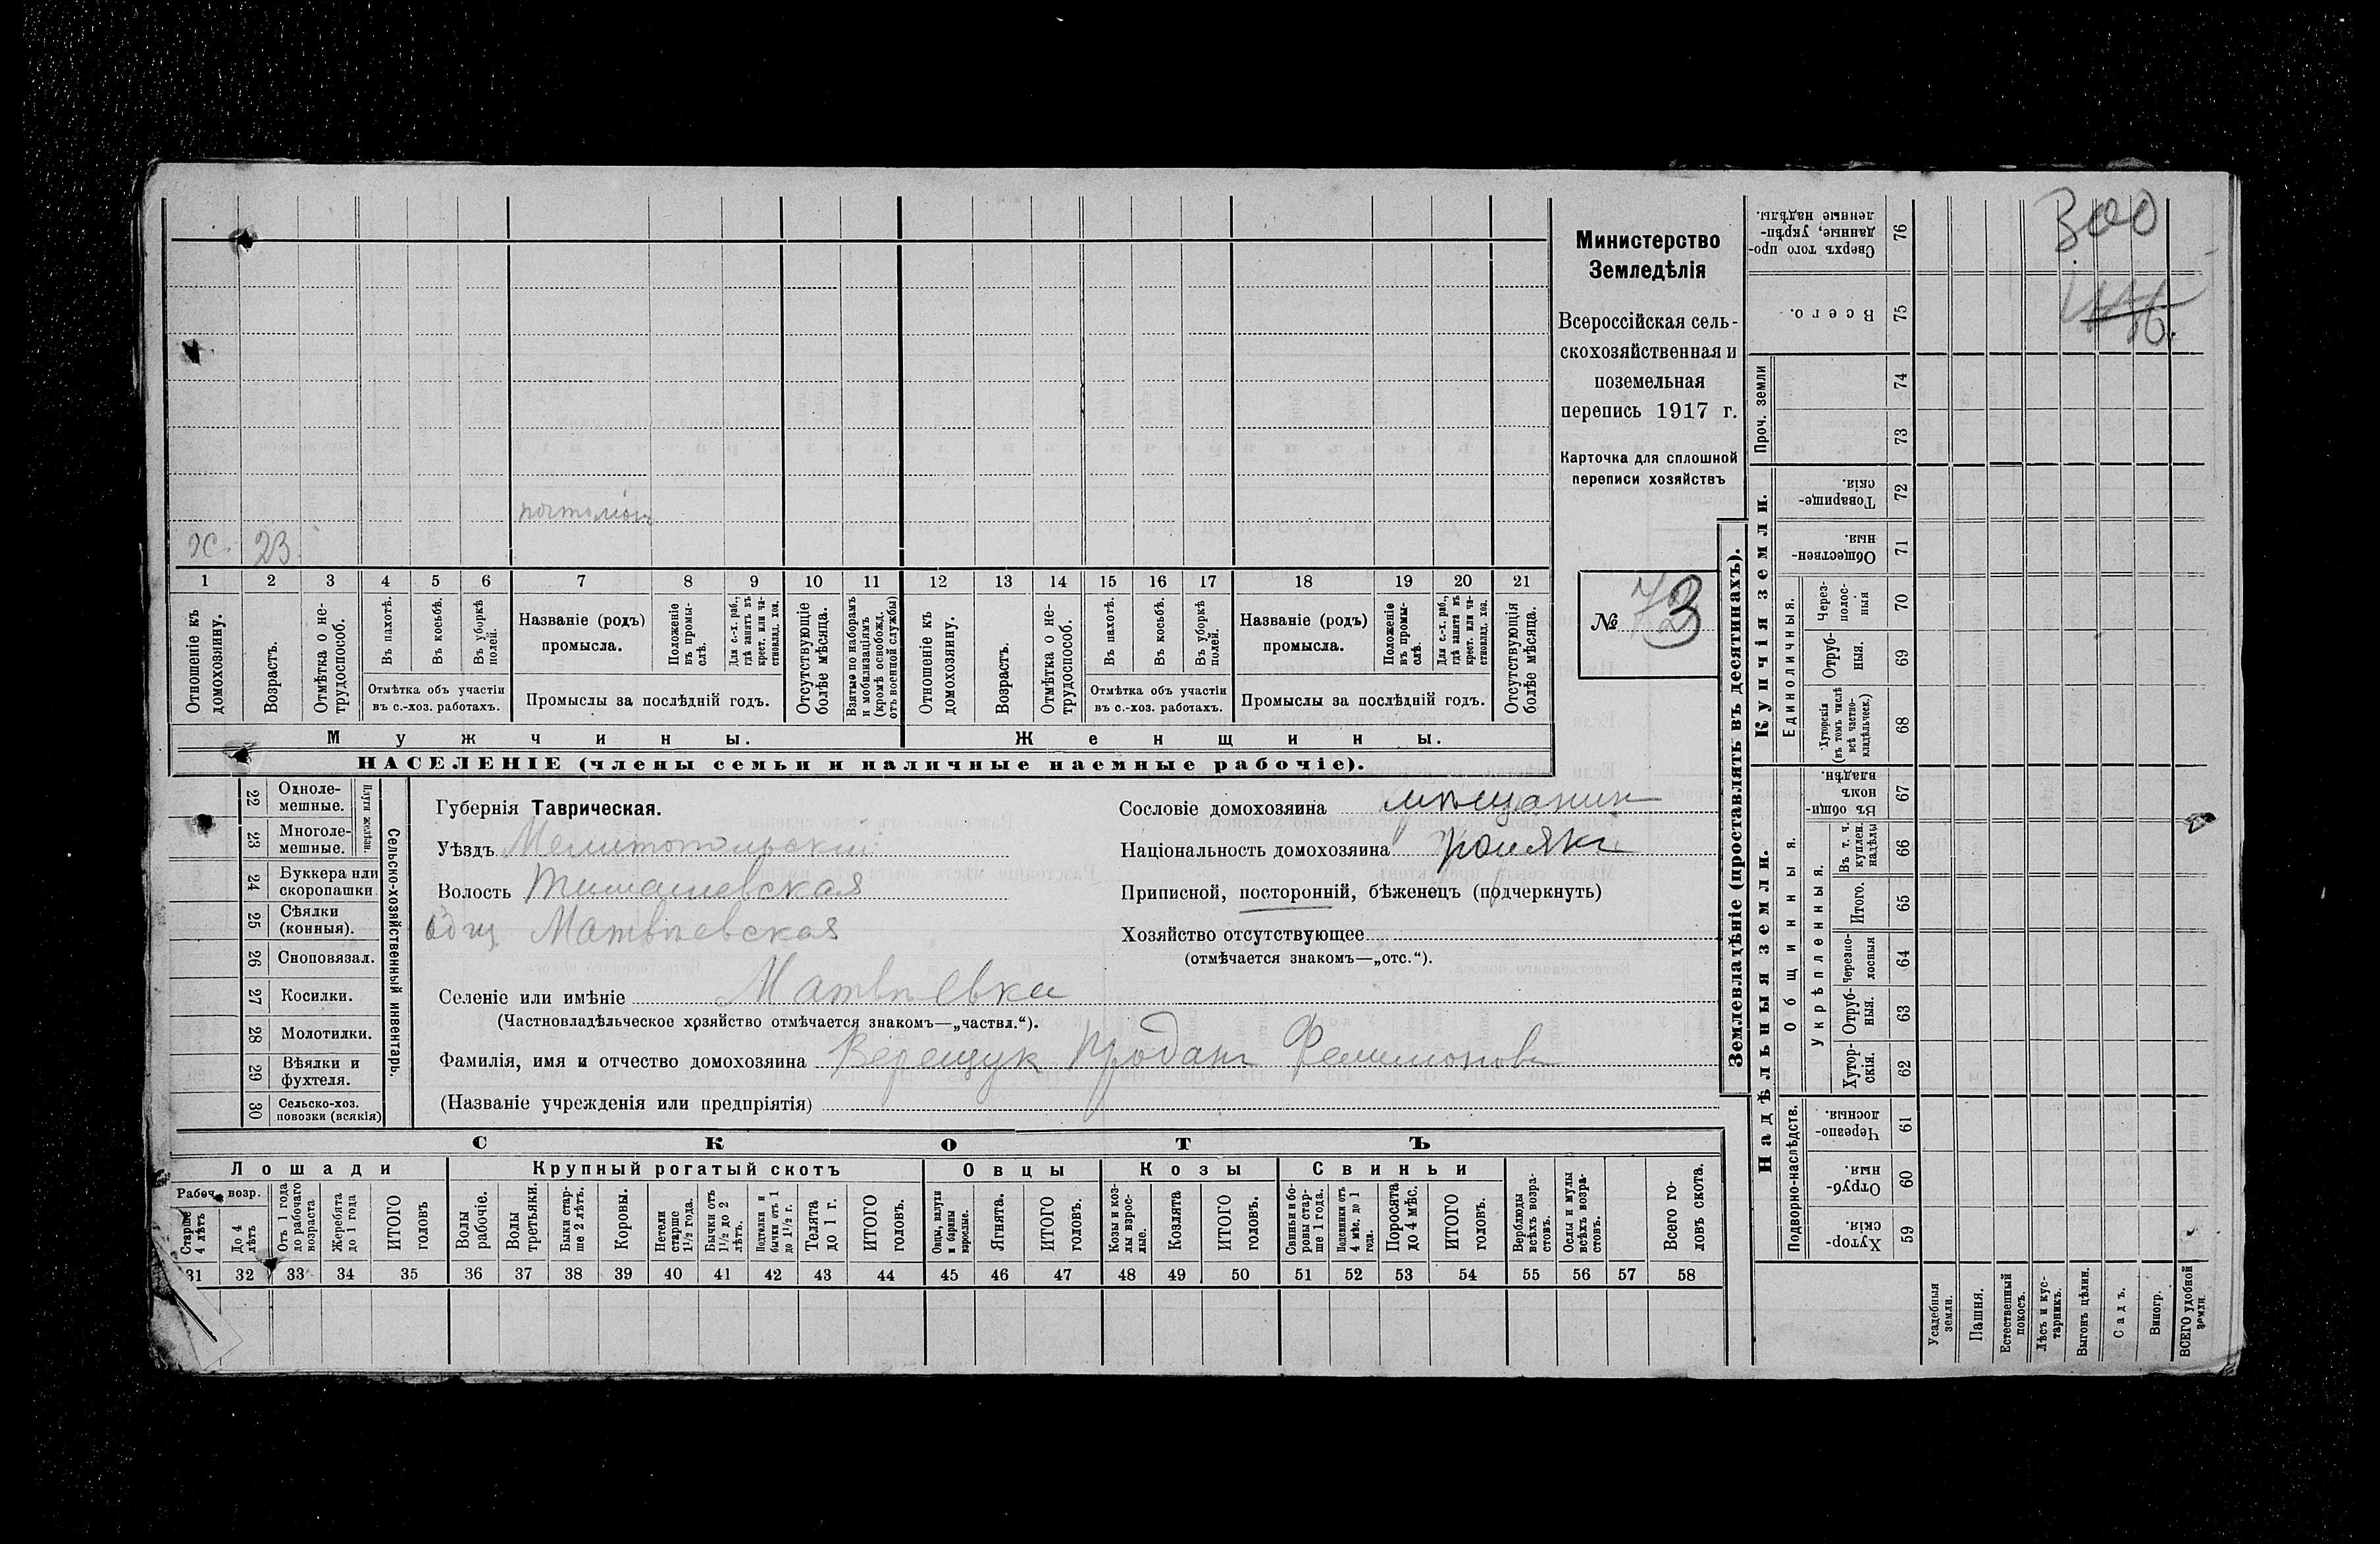 300
Министерство
Земледѣлія
Всероссійская сель-
скохозяйственная и
поземельная
перепись 1917 г.
Карточка для сплошной
переписи хозяйствъ
№ 73
х. 23
1 2 3 4 5 6 7 8 9 10 11 12 13 14 15 16 17 18 19 20 21
Отношеніе къ домохозяину.
Возрастъ.
Отмѣтка о не-трудоспособ.
Въ пахотѣ.
Въ косьбѣ.
Въ уборкѣ полей.
Отмѣтка объ участіи въ с.-хоз. работахъ.
Названіе (родъ) промысла.
Положеніе въ промы-слѣ.
Для с.-х. раб., гдѣ занятъ въ крест. или ча-стновлад. хоз.
Промыслы за послѣдній годъ.
Отсутствующіе болѣе мѣсяца.
Взятые по наборамъ и мобилизаціямъ (кромѣ освобожд. отъ военной службы)
Отношеніе къ домохозяину.
Возрастъ.
Отмѣтка о не-трудоспособ.
Въ пахотѣ.
Въ косьбѣ.
Въ уборкѣ полей.
Отмѣтка объ участіи въ с.-хоз. работахъ.
Названіе (родъ) промысла.
Положеніе въ промы-слѣ.
Для с.-х. раб., гдѣ заняти въ крест. или ча-стновлад. хоз.
Промыслы за послѣдній годъ.
Отсутствующія болѣе мѣсяца.
Мужчины. Женщины.
НАСЕЛЕНІЕ (члены семьи и наличные наемные рабочіе).
Сельско-хозяйственный инвентарь.
Плуги желѣзн.
22 Одноле-мешные.
23 Многоле-мешные.
24 Буккера или скоропашки
25 Сѣялки (конныя).
26 Сноповязал.
27 Косилки.
28 Молотилки.
29 Вѣялки и фухтеля.
30 Сельско-хоз. повозки (всякія)
Губернія Таврическая.
Уѣздъ Мелитопольскій
Волость Тимашевская
общ Матвѣевская
Селеніе или имѣніе Матвѣевка
(Частновладѣльческое хозяйство отмѣчается знакомъ—„частвл.“).
Фамилія, имя и отчество домохозяина Верещук Продан Филимонов
(Названіе учрежденія или предпріятія)
Сословіе домохозяина мѣщанин
Національность домохозяина полякъ
Приписной, посторонній, бѣженецъ (подчеркнуть)
Хозяйство отсутствующее
(отмѣчается знакомъ—„отс.“).
СКОТЪ
Лошади Крупный рогатый скотъ Овцы Козы Свиньи
Рабоч. возр.
Старше 4 лѣтъ
До 4 лѣтъ
Отъ 1 года до рабочаго возраста
Жеребята до 1 года
ИТОГО головъ
Волы рабочіе.
Волы третьяки.
Быки стар-ше 2 лѣтъ.
Коровы.
Нетели старше 1½ года.
Бычки отъ 1½ до 2 лѣтъ.
Подтелки и бычки отъ 1 до 1½ г.
Телята до 1 г.
ИТОГО головъ.
Овцы, валухи и бараны взрослые.
Ягнята.
ИТОГО головъ.
Козы и коз-лы взрос-лые.
Козлята
ИТОГО головъ.
Свиньи и бо-ровы стар-ше 1 года.
Подсвинки отъ 4 мѣс. до 1 года.
Поросята до 4 мѣс.
ИТОГО головъ.
Верблюды всѣхъ возра-стовъ.
Ослы и мулы всѣхъ возра-стовъ.
Всего го-ловъ скота.
31 32 33 34 35 36 37 38 39 40 41 42 43 44 45 46 47 48 49 50 51 52 53 54 55 56 57 58
Землевладѣніе (проставлять въ десятинахъ).
Купчія земли.
Проч. земли
Сверхъ того про-данные, укрѣп-ленные надѣлы. 76
Всего. 75
74
73
Товарище-скія. 72
Обществен-ныя. 71
Единоличныя.
Через-полос-ныя 70
Отруб-ныя. 69
Хуторскія (въ томъ числѣ всѣ частно-владѣльческ.) 68
Надѣльныя земли.
Общинныя.
Въ общи-номъ владѣн. 67
Укрѣпленныя.
Въ т. ч. куплен. надѣлы 66
Итого. 65
Черезпо-лосныя 64
Отруб-ныя. 63
Хутор-скія. 62
Подворно-наслѣдств.
Черезпо-лосныя. 61
Отруб-ныя. 60
Хутор-скія. 59
Усадебныя земли.
Пашня.
Естественный покосъ.
Лѣсъ и кус-тарникъ.
Выгонъ цѣлин.
Садъ.
Виногр.
ВСЕГО удобной земли.